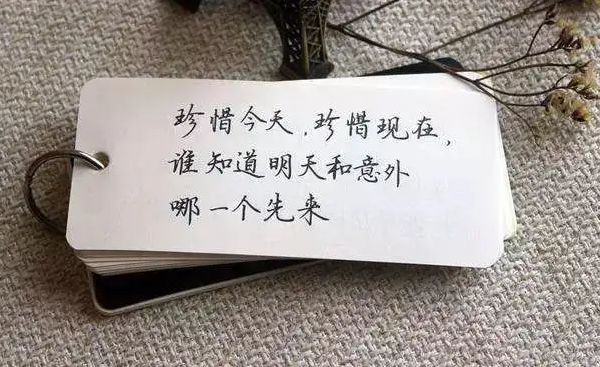 珍惜今天,珍惜现在,
谁知道明天和意外
哪一个先来